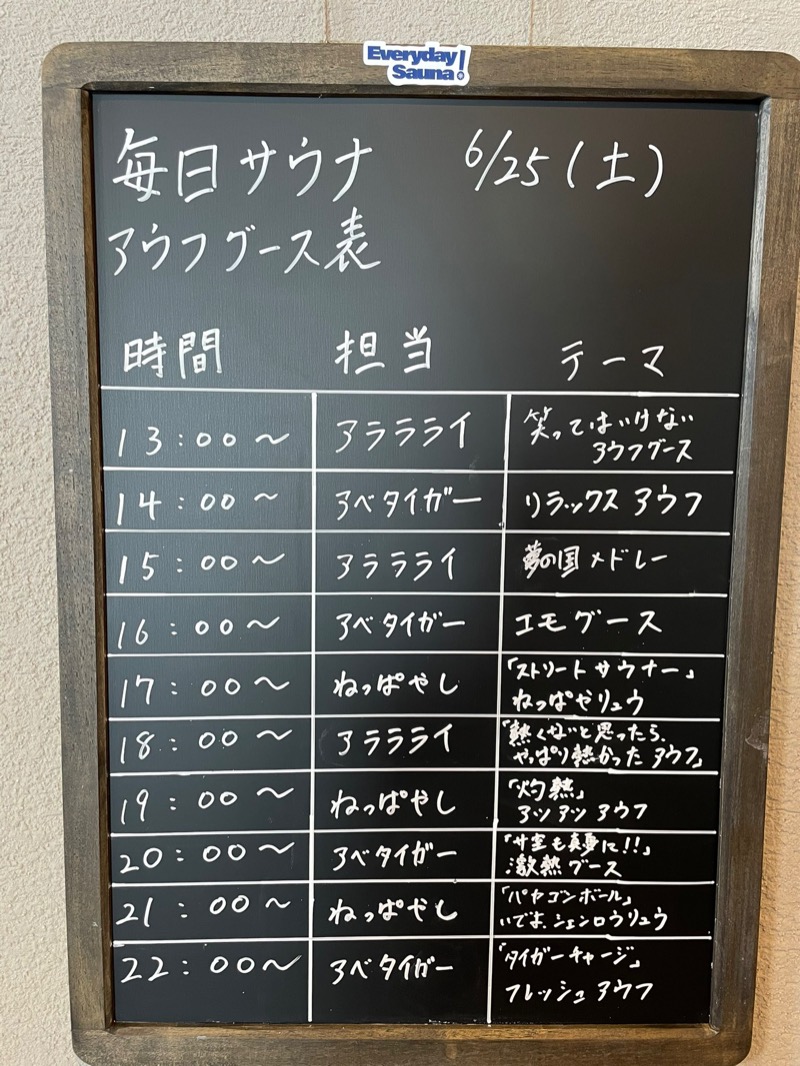 Everyday
Sauna!
毎日サウナ 6/25(土)
アウフグース表
時間 担当 テーマ
13:00〜 アララライ 笑ってはいけない
アウフグース
14:00〜 アベタイガー リラックスアウフ
15:00〜 アララライ 夢の国メドレー
16:00〜 アベタイガー エモグース
17:00〜 ねっぱやし 「ストリートサウナー」
ねっぱやリュウ
18:00〜 アララライ 「熱くないと思ったら、
やっぱり熱かったアウフ」
19:00〜 ねっぱやし 「灼熱」
アツアツアウフ
20:00〜 アベタイガー 「サ室も真夏に!!」
激熱グース
21:00〜 ねっぱやし 「パヤゴンボール」
いでよ、シェンロウリュウ
22:00〜 アベタイガー 「タイガーチャージ」
フレッシュアウフ